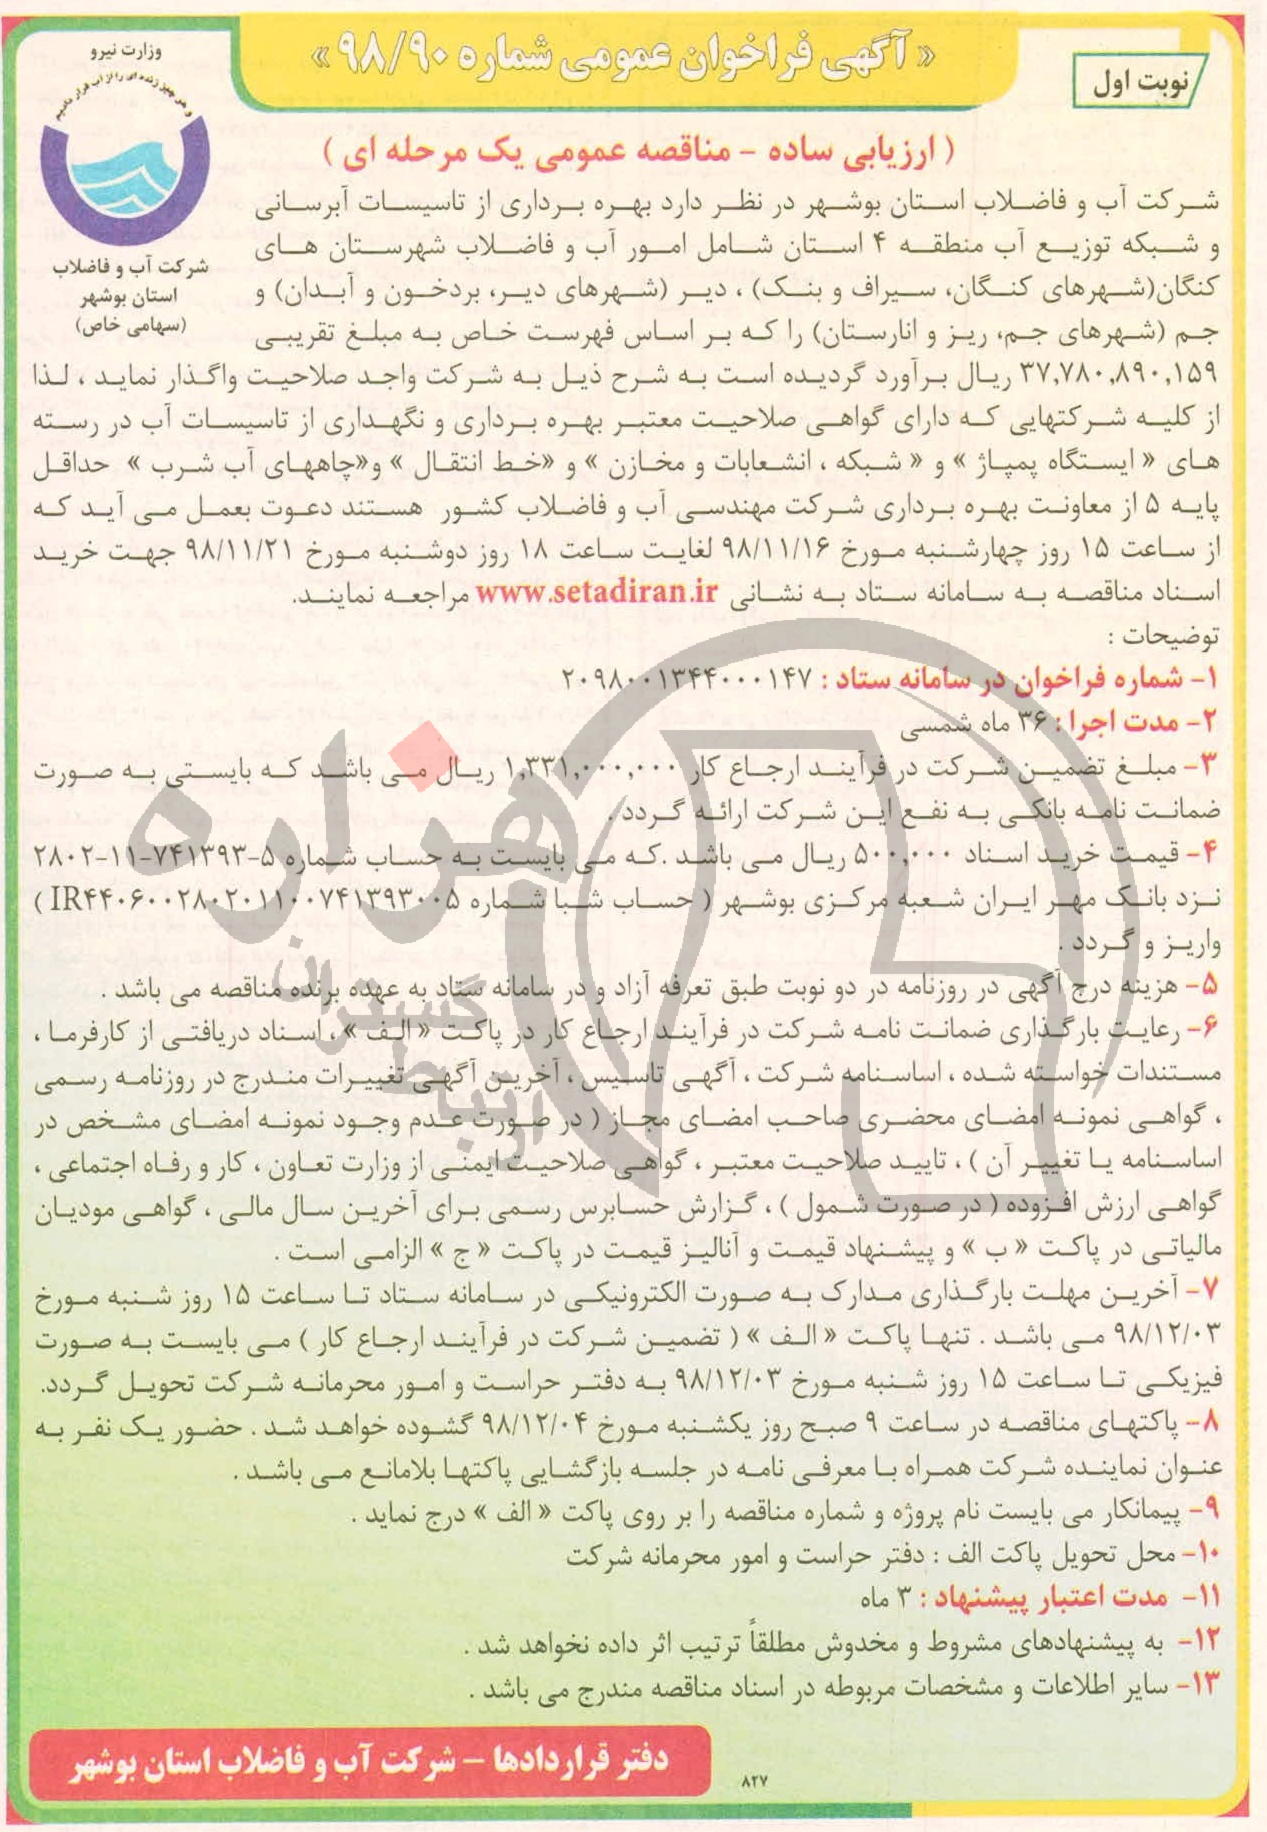 « آگهی فراخوان عمومی شماره ۹۸/۹۰ »
نوبت اول
وزارت نیرو
و هر چیز زنده ای را از آب قرار دادیم
شرکت آب و فاضلاب
استان بوشهر
(سهامی خاص)
( ارزیابی ساده - مناقصه عمومی یک مرحله ای )
شرکت آب و فاضلاب استان بوشهر در نظر دارد بهره برداری از تاسیسات آبرسانی
و شبکه توزیع آب منطقه ۴ استان شامل امور آب و فاضلاب شهرستان های
کنگان(شهرهای کنگان، سیراف و بنک) ، دیر (شهرهای دیر، بردخون و آبدان) و
جم (شهرهای جم، ریز و انارستان) را که بر اساس فهرست خاص به مبلغ تقریبی
۳۷,۷۸۰,۸۹۰,۱۵۹ ریال برآورد گردیده است به شرح ذیل به شرکت واجد صلاحیت واگذار نماید ، لذا
از کلیه شرکتهایی که دارای گواهی صلاحیت معتبر بهره برداری و نگهداری از تاسیسات آب در رسته
های « ایستگاه پمپاژ » و « شبکه ، انشعابات و مخازن » و «خط انتقال » و«چاههای آب شرب » حداقل
پایه ۵ از معاونت بهره برداری شرکت مهندسی آب و فاضلاب کشور هستند دعوت بعمل می آید که
از ساعت ۱۵ روز چهارشنبه مورخ ۹۸/۱۱/۱۶ لغایت ساعت ۱۸ روز دوشنبه مورخ ۹۸/۱۱/۲۱ جهت خرید
اسناد مناقصه به سامانه ستاد به نشانی www.setadiran.ir مراجعه نمایند.
توضیحات :
۱- شماره فراخوان در سامانه ستاد : ۲۰۹۸۰۰۱۳۴۴۰۰۰۱۴۷
۲- مدت اجرا : ۳۶ ماه شمسی
۳- مبلغ تضمین شرکت در فرآیند ارجاع کار ۱,۳۳۱,۰۰۰,۰۰۰ ریال می باشد که بایستی به صورت
ضمانت نامه بانکی به نفع این شرکت ارائه گردد .
۴- قیمت خرید اسناد ۵۰۰,۰۰۰ ریال می باشد .که می بایست به حساب شماره ۵-۷۴۱۳۹۳-۱۱-۲۸۰۲
نزد بانک مهر ایران شعبه مرکزی بوشهر ( حساب شبا شماره IR۴۴۰۶۰۰۲۸۰۲۰۱۱۰۰۷۴۱۳۹۳۰۰۵ )
واریز و گردد .
۵- هزینه درج آگهی در روزنامه در دو نوبت طبق تعرفه آزاد و در سامانه ستاد به عهده برنده مناقصه می باشد .
۶- رعایت بارگذاری ضمانت نامه شرکت در فرآیند ارجاع کار در پاکت « الف » ، اسناد دریافتی از کارفرما ،
مستندات خواسته شده ، اساسنامه شرکت ، آگهی تاسیس ، آخرین آگهی تغییرات مندرج در روزنامه رسمی
، گواهی نمونه امضای محضری صاحب امضای مجاز ( در صورت عدم وجود نمونه امضای مشخص در
اساسنامه یا تغییر آن ) ، تایید صلاحیت معتبر ، گواهی صلاحیت ایمنی از وزارت تعاون ، کار و رفاه اجتماعی ،
گواهی ارزش افزوده ( در صورت شمول ) ، گزارش حسابرس رسمی برای آخرین سال مالی ، گواهی مودیان
مالیاتی در پاکت « ب » و پیشنهاد قیمت و آنالیز قیمت در پاکت « ج » الزامی است .
۷- آخرین مهلت بارگذاری مدارک به صورت الکترونیکی در سامانه ستاد تا ساعت ۱۵ روز شنبه مورخ
۹۸/۱۲/۰۳ می باشد . تنها پاکت « الف » ( تضمین شرکت در فرآیند ارجاع کار ) می بایست به صورت
فیزیکی تا ساعت ۱۵ روز شنبه مورخ ۹۸/۱۲/۰۳ به دفتر حراست و امور محرمانه شرکت تحویل گردد.
۸- پاکتهای مناقصه در ساعت ۹ صبح روز یکشنبه مورخ ۹۸/۱۲/۰۴ گشوده خواهد شد . حضور یک نفر به
عنوان نماینده شرکت همراه با معرفی نامه در جلسه بازگشایی پاکتها بلامانع می باشد .
۹- پیمانکار می بایست نام پروژه و شماره مناقصه را بر روی پاکت « الف » درج نماید .
۱۰- محل تحویل پاکت الف : دفتر حراست و امور محرمانه شرکت
۱۱- مدت اعتبار پیشنهاد : ۳ ماه
۱۲- به پیشنهادهای مشروط و مخدوش مطلقاً ترتیب اثر داده نخواهد شد .
۱۳- سایر اطلاعات و مشخصات مربوطه در اسناد مناقصه مندرج می باشد .
دفتر قراردادها - شرکت آب و فاضلاب استان بوشهر
۸۲۷
هزاره